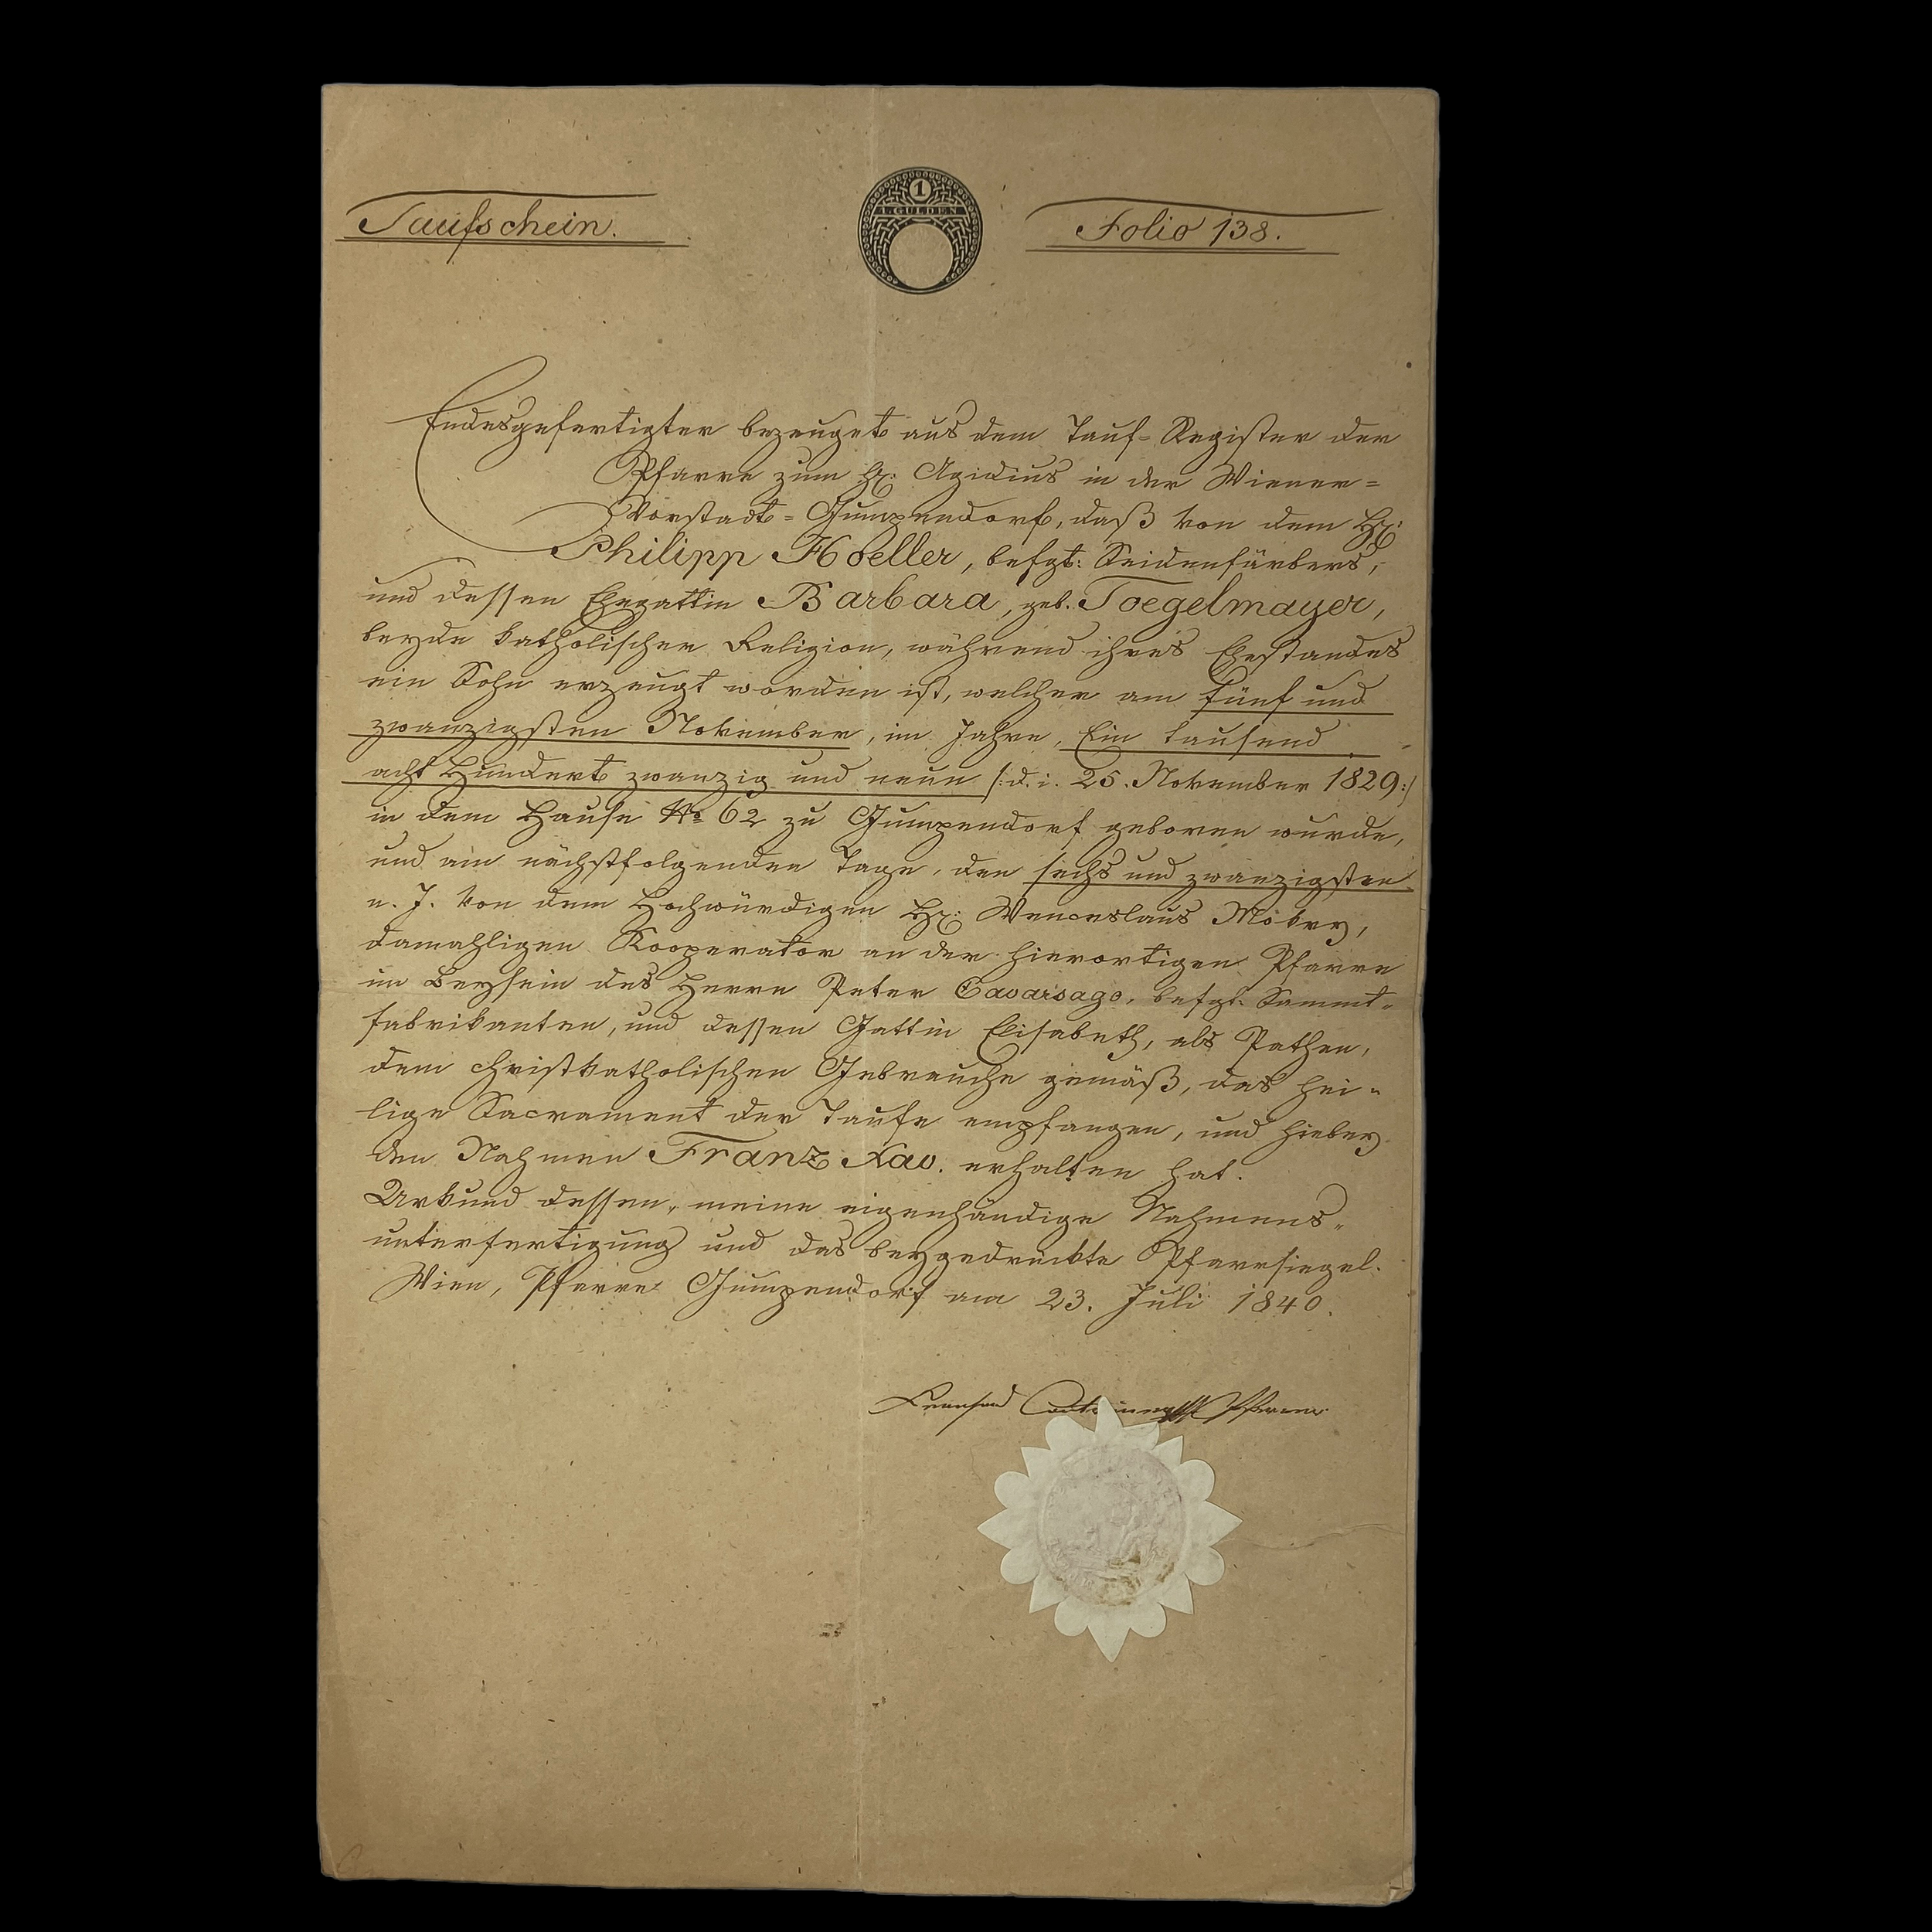 Taufschein.
1
1. GULDEN
Folio 138.
Endesgefertigter bezeuget aus dem Tauf-Register der
Pfarre zum H: Agidius in der Wiener=
Vorstadt=Gumpendorf, daß von dem H:
Philipp Hoeller, befgt: Seidenfärbers,
und dessen Ehegattin Barbara, geb. Toegelmayer,
beyde katholischer Religion, während ihres Ehestandes
ein Sohn erzeugt worden ist, welcher am fünf und
zwanzigsten November, im Jahre, Ein tausend
acht Hundert zwanzig und neun /: d. i. 25. November 1829 :/
in dem Hause No 62 zu Gumpendorf geboren wurde,
und am nächstfolgenden Tage, den sechs und zwanzigsten
e. J. von dem Hochwürdigen H: Wenceslaus Mokry,
damahligen Kooperator an der hierortigen Pfarre
im Beysein des Herrn Peter Cavaisago, befgt: Sammt=
fabrikanten, und dessen Gattin Elisabeth, als Pathen,
dem christkatholischen Gebrauche gemäß, das hei=
lige Sacrament der Taufe empfangen, und hiebey
den Nahmen Franz Xav. erhalten hat.
Urkund dessen, meine eigenhändige Nahmens=
unterfertigung und das beygedrückte Pfarrsiegel.
Wien, Pfarre Gumpendorf am 23. Juli 1840.
Pfarrer